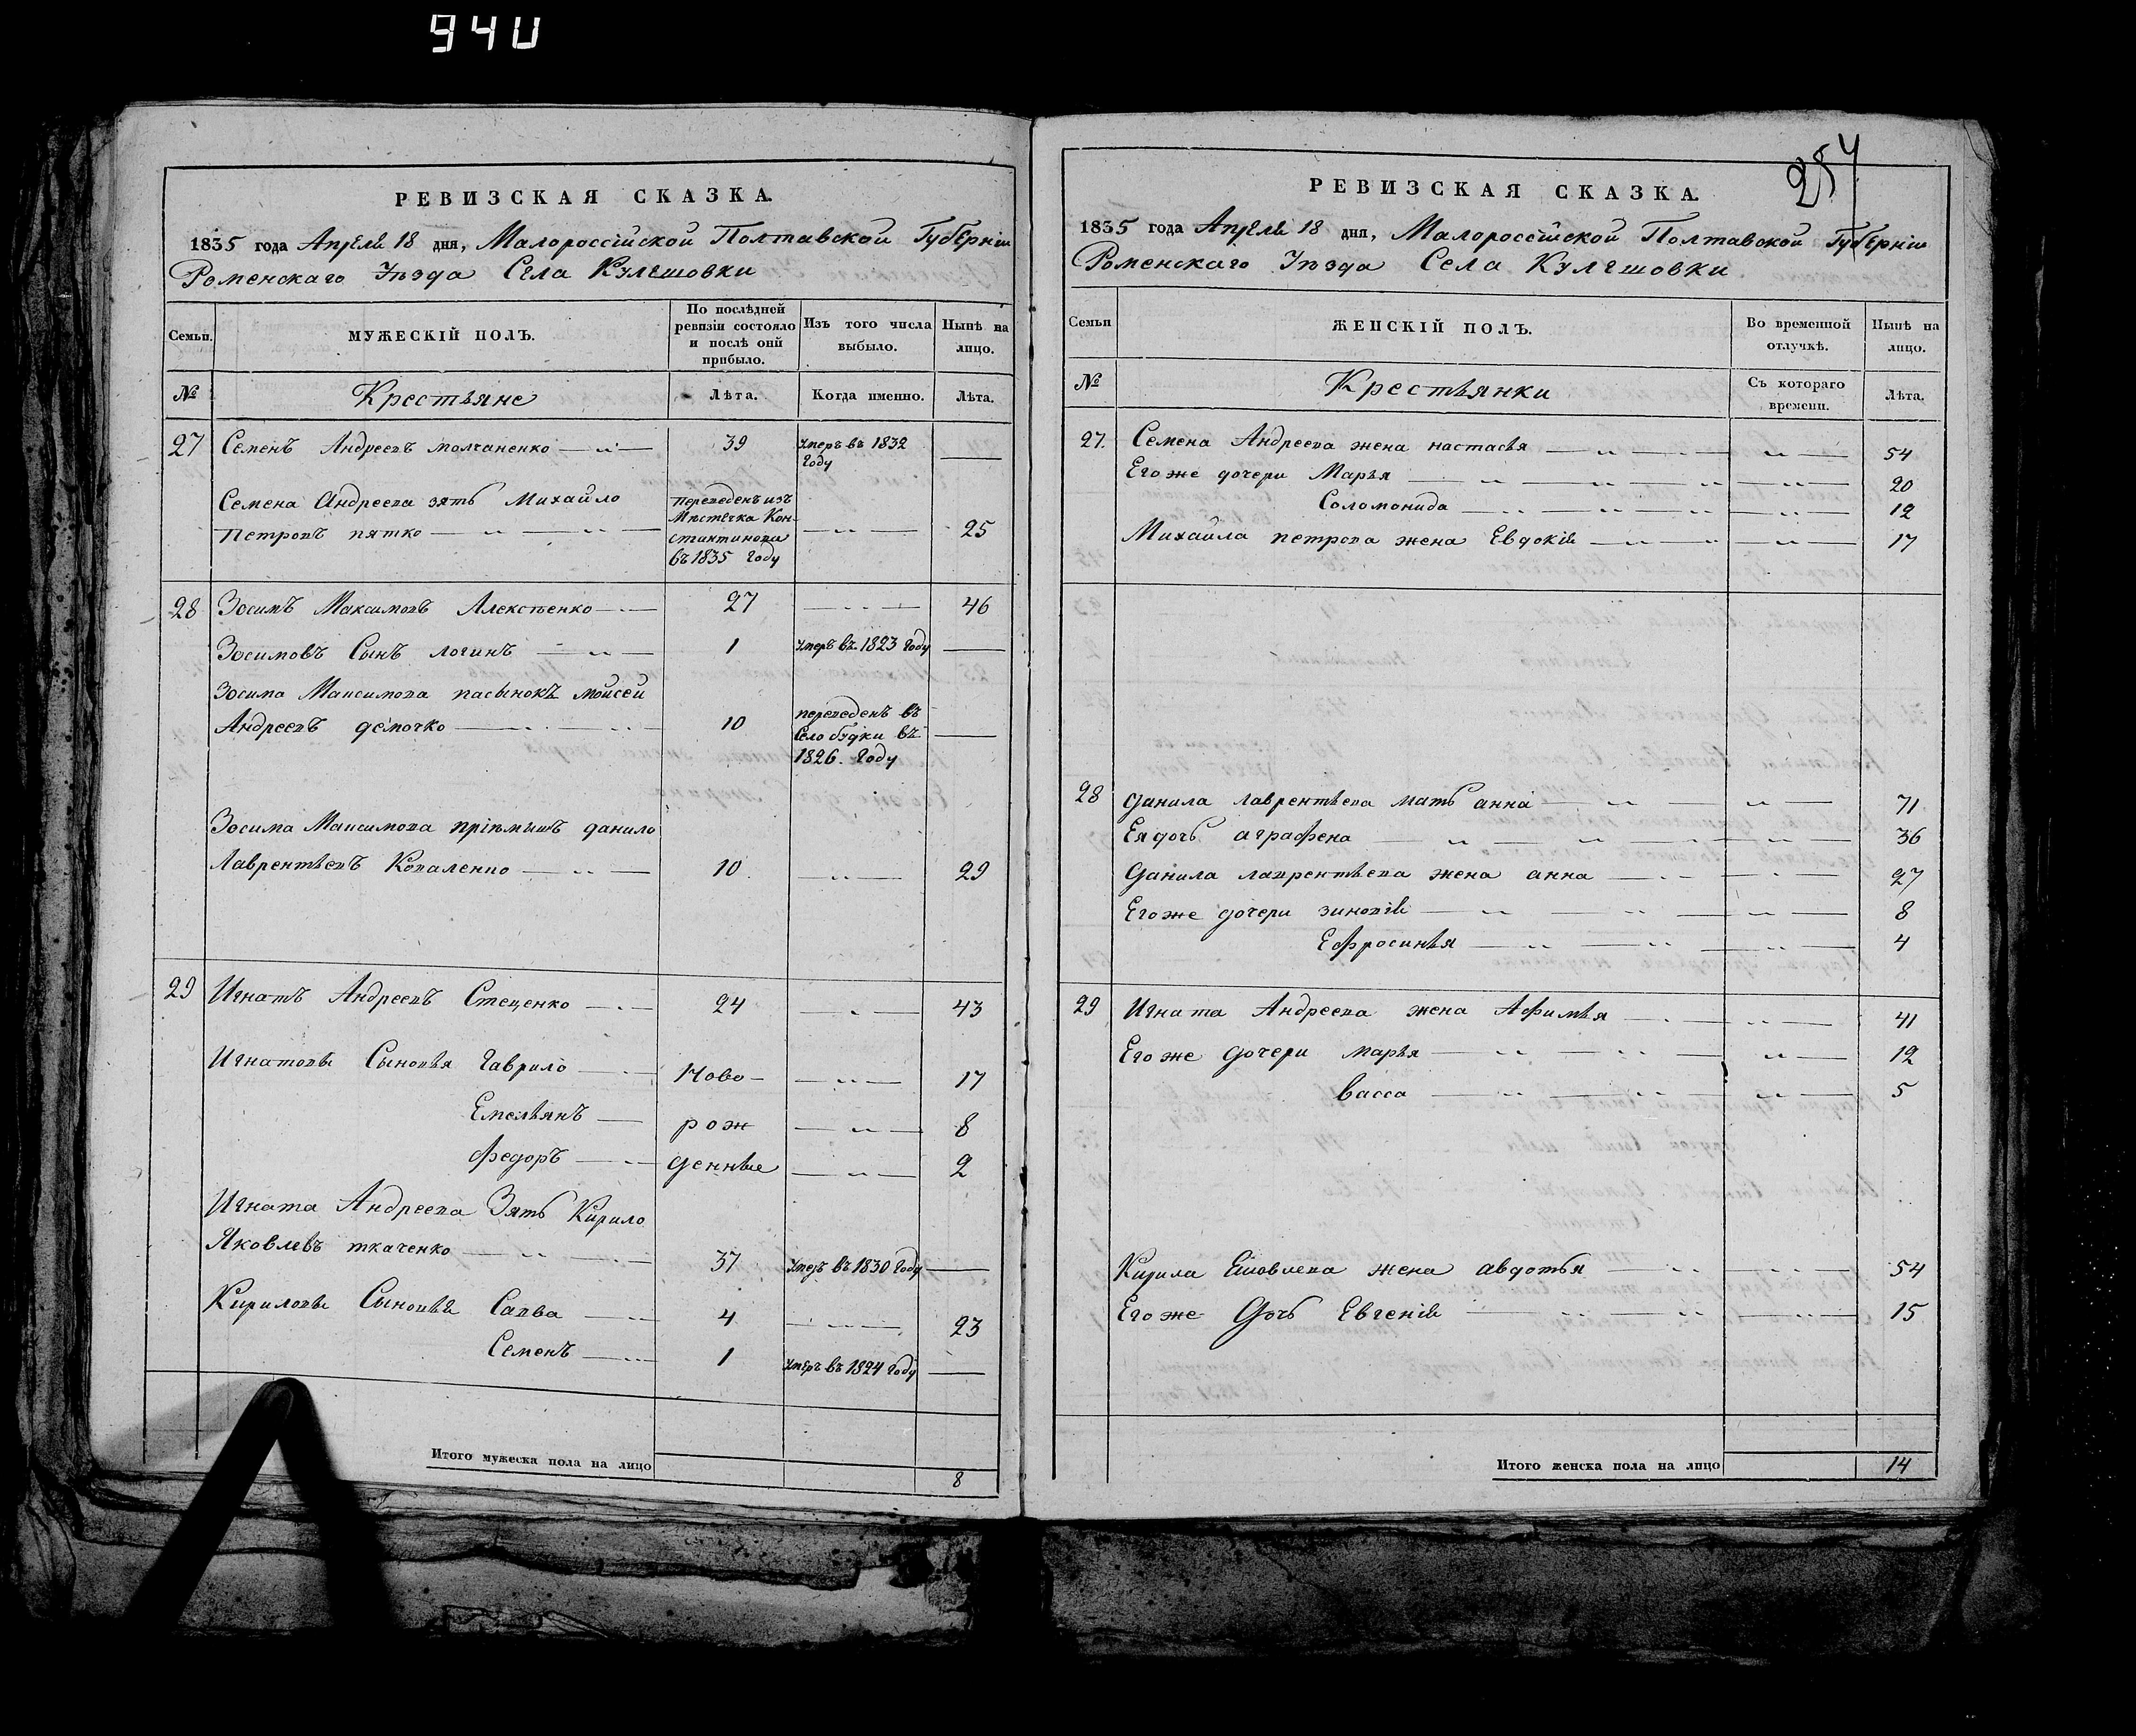 940
РЕВИЗСКАЯ СКАЗКА.
1835 года Апреля 18 дня, Малороссійской Полтавской Губерніи
Роменскаго Уѣзда Села Кулешовки
Семьи.
МУЖЕСКІЙ ПОЛЪ.
По послѣдней ревизіи состояло и послѣ оной прибыло.
Изъ того числа выбыло.
Нынѣ на лицо.
№
Крестьяне
Лѣта.
Когда именно.
Лѣта.
27 Семенъ Андреевъ молчаненко 39 умеръ въ 1832 Году
Семена Андреева зять Михайло
петровъ пятко переведенъ изъ Мѣстечка Константинова въ 1835 Году 25
28 Зосимъ Максимовъ Алексѣенко 27 46
Зосимовъ Сынъ логинъ 1 умеръ въ 1823 Году
Зосима Максимова пасынокъ мойсей
Андреевъ демочко 10 переведенъ въ Село будки въ 1826. Году
Зосима Максимова пріемышъ данило
Лаврентьевъ Коваленко 10 29
29 Игнатъ Андреевъ Стеценко 24 43
Игнатовы Сыновья Гаврило Ново- 17
Емельянъ рож 8
Федоръ денные 2
Игната Андреева Зять Кирило
Яковлевъ ткаченко 37 умеръ въ 1830 Году
Кириловы Сыновья Савва 4 23
Семенъ 1 умеръ въ 1824 Году
Итого мужеска пола на лицо 8
254
РЕВИЗСКАЯ СКАЗКА.
1835 года Апреля 18 дня, Малороссійской Полтавской Губерніи
Роменскаго Уѣзда Села Кулешовки
Семьи
ЖЕНСКІЙ ПОЛЪ.
Во временной отлучкѣ.
Нынѣ на лицо.
№
Крестьянки
Съ котораго времени.
Лѣта.
27. Семена Андреева жена настасья 54
Его же дочери Марья 20
Соломонида 12
Михайла петрова жена Евдокія 17
28 данила лаврентьева мать анна 71
Ея дочь аграфена 36
данила лаврентьева жена анна 27
Его же дочери зиновія 8
Ефросинья 4
29 Игната Андреева жена Афимья 41
Его же дочери марья 12
васса 5
Кирила Яковлева жена авдотья 54
Его же дочь Евгенія 15
Итого женска пола на лицо 14